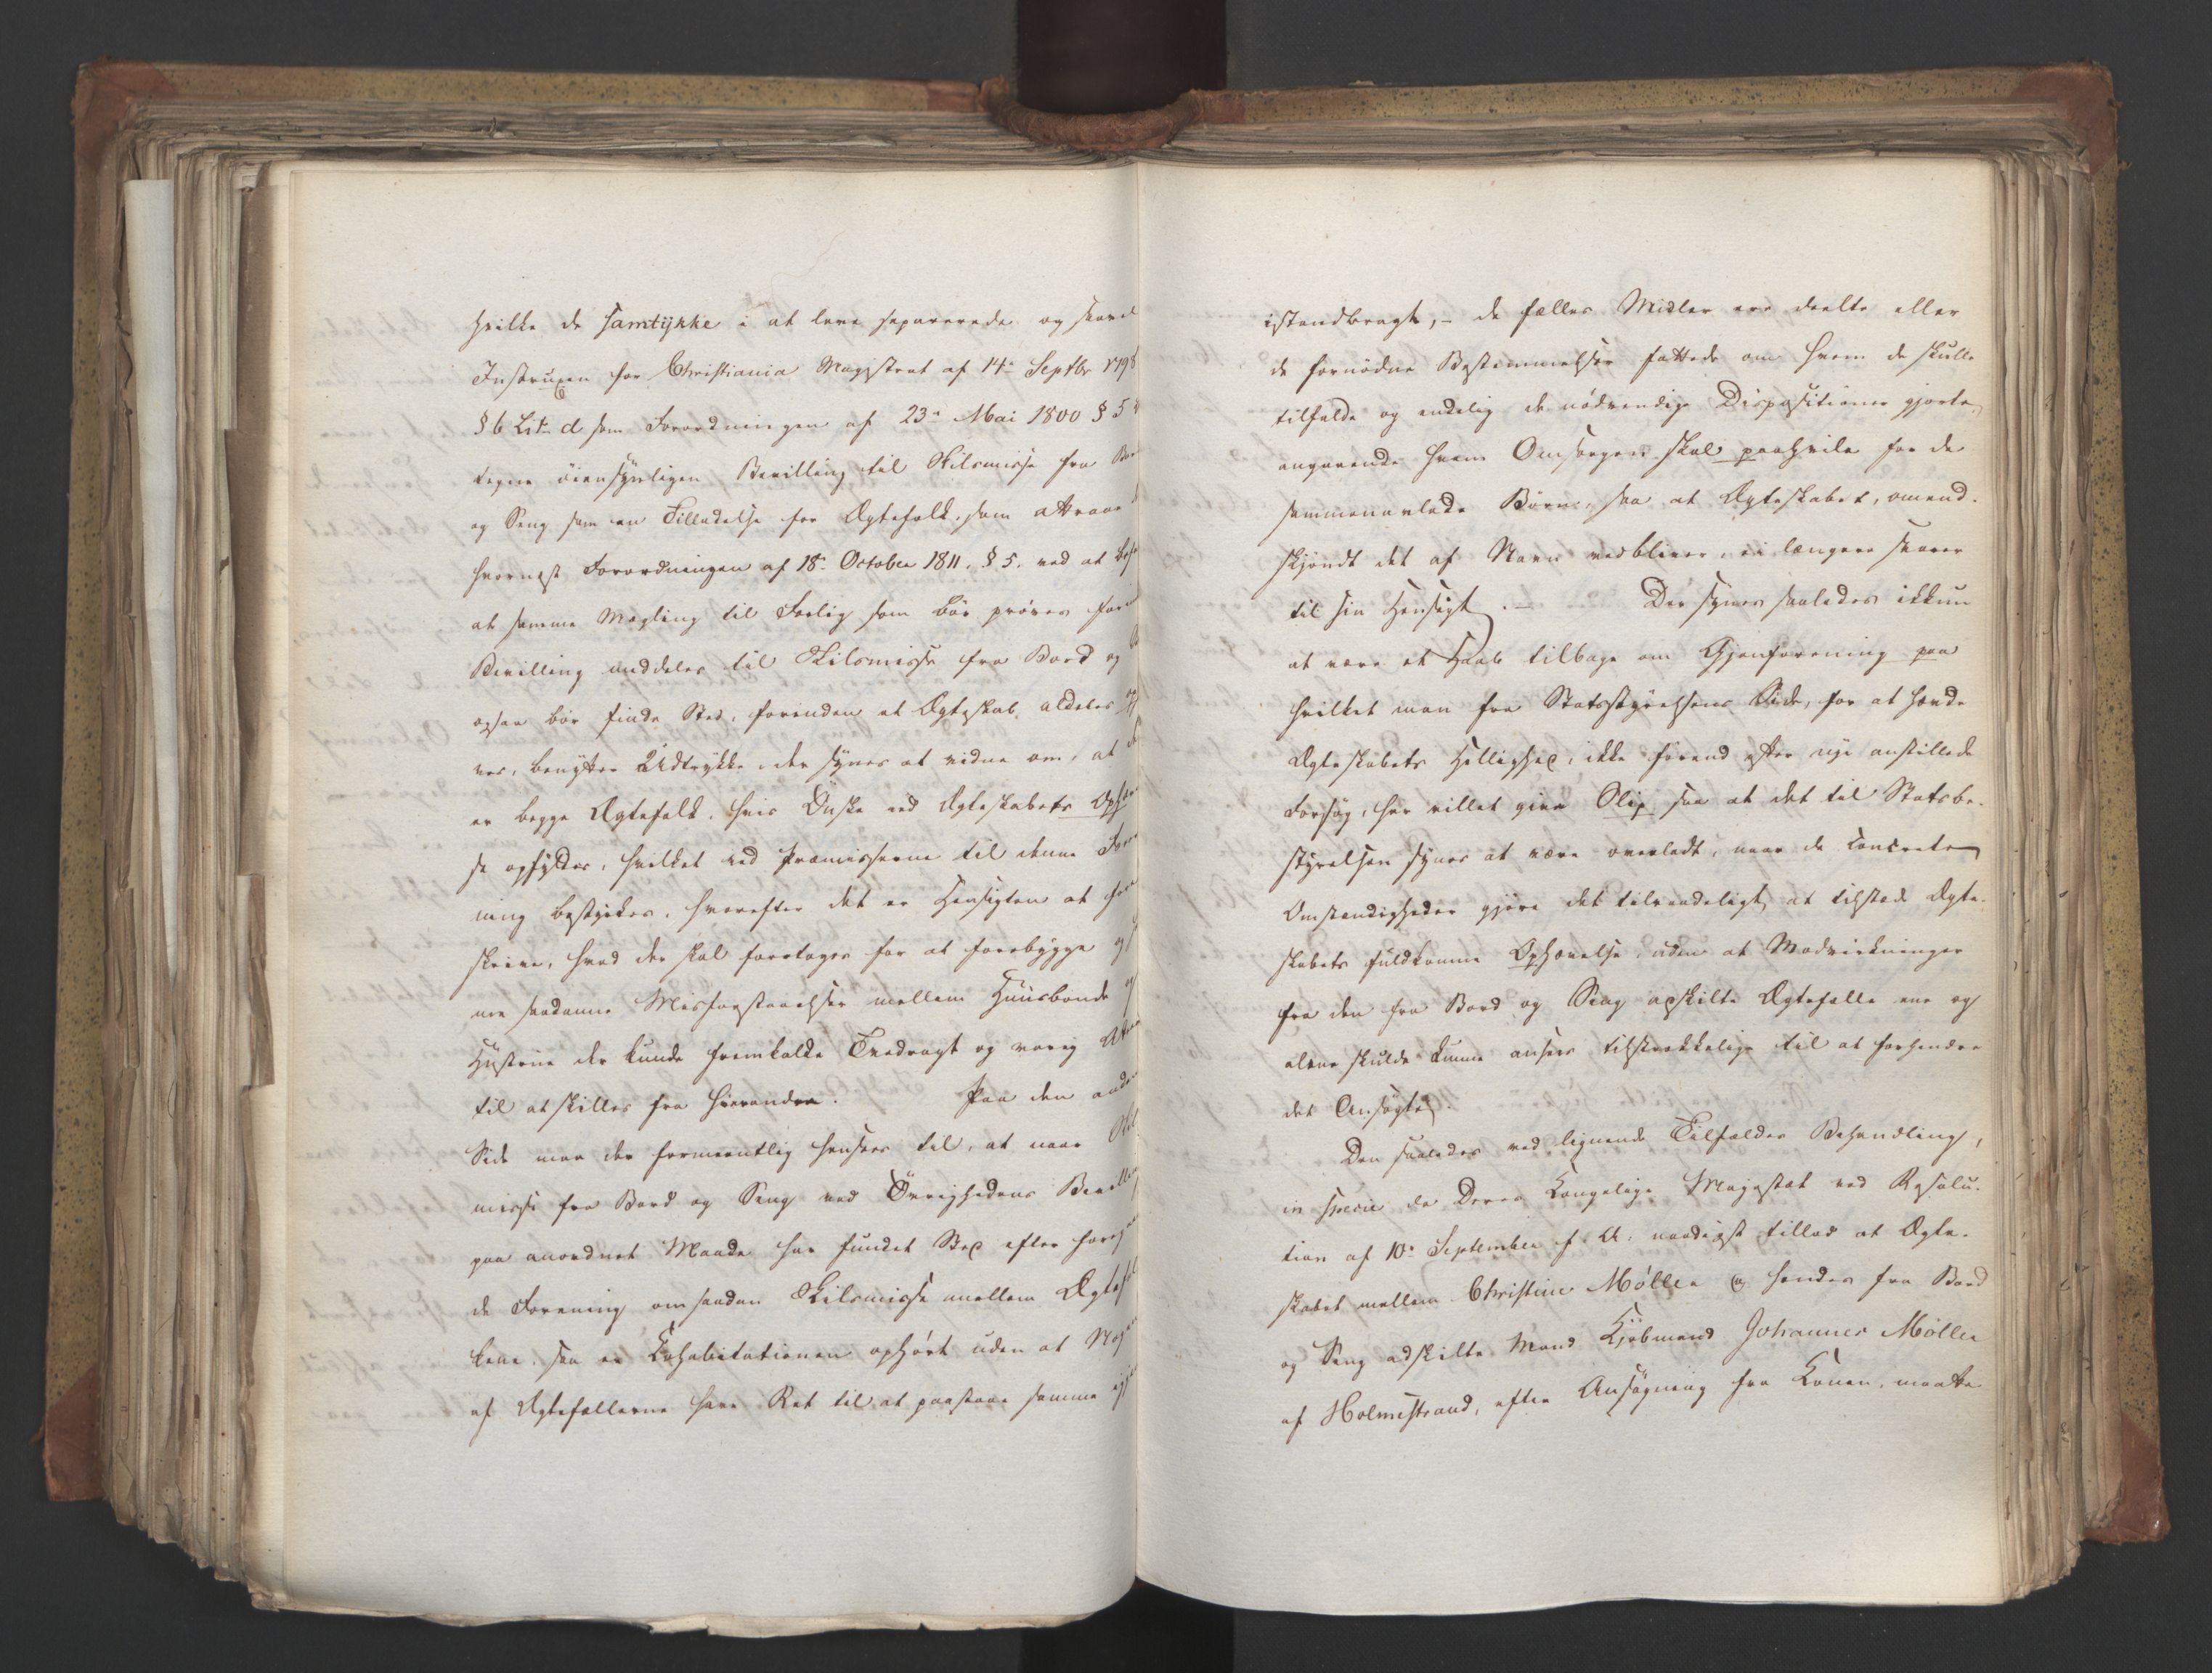 hvilke de samtykke i at leve separerede og saavel
Instruxen for Christiania Magistrat af 14de Septbr 1798
§ 6 Litr. d som Forordningen af 23de Mai 1800 § 5
øiensynligen Bevilling til Skilsmisse fra
og Seng som en Tilladelse for Ægtefolk, som attraae
hvornæst Forordningen af 18de October 1811. § 5. ved at
at samme Mægling til Forlig som bør prøves
Bevilling meddeles til Skilsmisse fra Bord og
ogsaa bør finde Sted, forinden et Ægteskab aldeles
ves, benytter Udtrykke, der synes at vidne om, at
er begge Ægtefolk, hvis Ønske ved Ægteskabets
se opfyldes, hvilket ved Præmisserne til denne
ning bestyrkes, hvorefter det er Hensigten at
skrive, hvad der skal foretages for at forebygge
me saadanne Misforstaaelser mellem Huusbonde og
Hustrue der kunde fremkalde Tvedragt og varig
til at skilles fra hverandre. Paa den anden
Side maa der formeentlig hensees til, at naar
misse fra Bord og Seng ved Øvrighedens
paa anordnet Maade har fundet Sted efter
de Forening om saadan Skilsmisse mellem
kene, saa er Cohabitationen ophørt uden at
af Ægtefællerne have Ret til at paastaae samme
istandbragt, – de fælles Midler ere deelte eller
de fornødne Bestemmelser fattede om hvem de skulle
tilfalde og endelig de nødvendige Dispositioner gjorte,
angaaende hvem Omsorgen skal paahvile for de
sammenavlede Børn, saa at Ægteskabet, omend-
skjøndt det af Navn vedbliver, ei længere svarer
til sin Hensigt. – Der synes saaledes ikkun
at være et Haab tilbage om Gjenforening paa
hvilket man fra Statsstyrelsens Side, for at hævde
Ægteskabets Hellighed, ikke førend efter nye anstillede
Forsøg, har villet give Slip saa at det til Statsbe-
styrelsen synes at være overladt, naar de concrete
Omstændigheder gjøre det tilraadeligt, at tilstede Ægte-
skabets fuldkomne Ophævelse, uden at Modvirkninger
fra den fra Bord og Seng adskilte Ægtefælle ene og
alene skulde kunne ansees tilstrækkelige til at forhindre
det Ansøgte.
Den saaledes ved lignende Tilfældes Behandling,
in specie da Deres Kongelige Majestæt ved Resolu-
tion af 10de September f. A. naadigst tillod at Ægte-
skabet mellem Christine Møller og hendes fra Bord
og Seng adskilte Mand Kjøbmand Johannes Møller
af Holmestrand, efter Ansøgning fra Konen, maatte